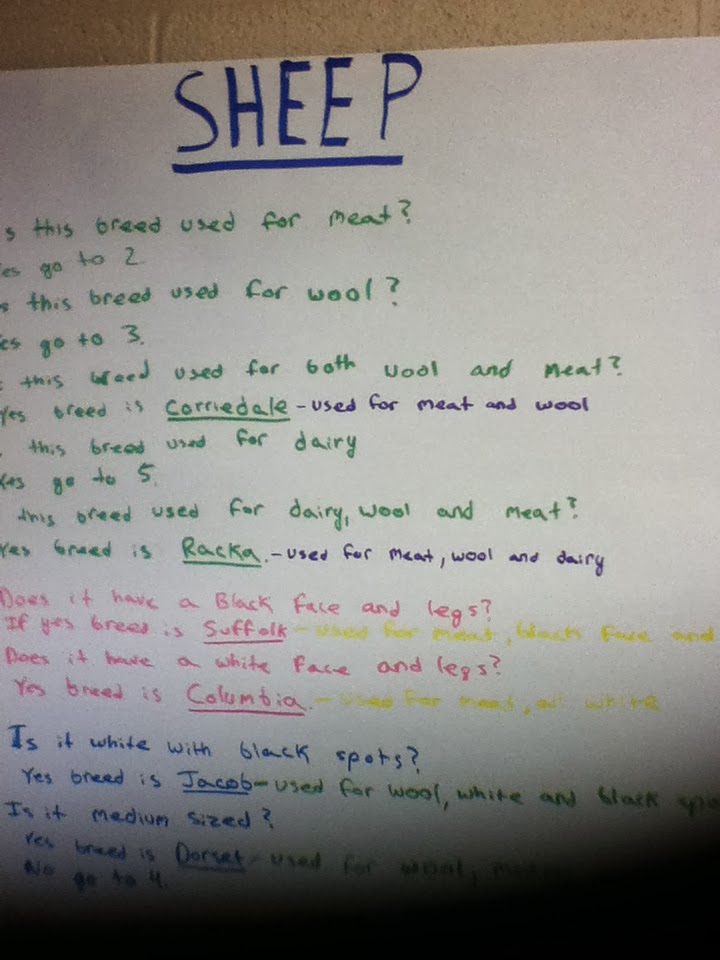 SHEEP
s this breed used for meat?
es go to 2
s this breed used for wool?
es go to 3.
this breed used for both wool and meat?
Yes breed is Corriedale - used for meat and wool
this breed used for dairy
Yes go to 5.
this breed used for dairy, wool and meat?
Yes breed is Racka. - used for meat, wool and dairy
Does it have a Black face and legs?
If yes breed is Suffolk - used for meat, black face and
Does it have a white face and legs?
Yes breed is Columbia. - used for meat, white
Is it white with black spots?
Yes breed is Jacob - used for wool, white and black spo
Is it medium sized?
Yes breed is Dorset - used for wool,
No go to 4.